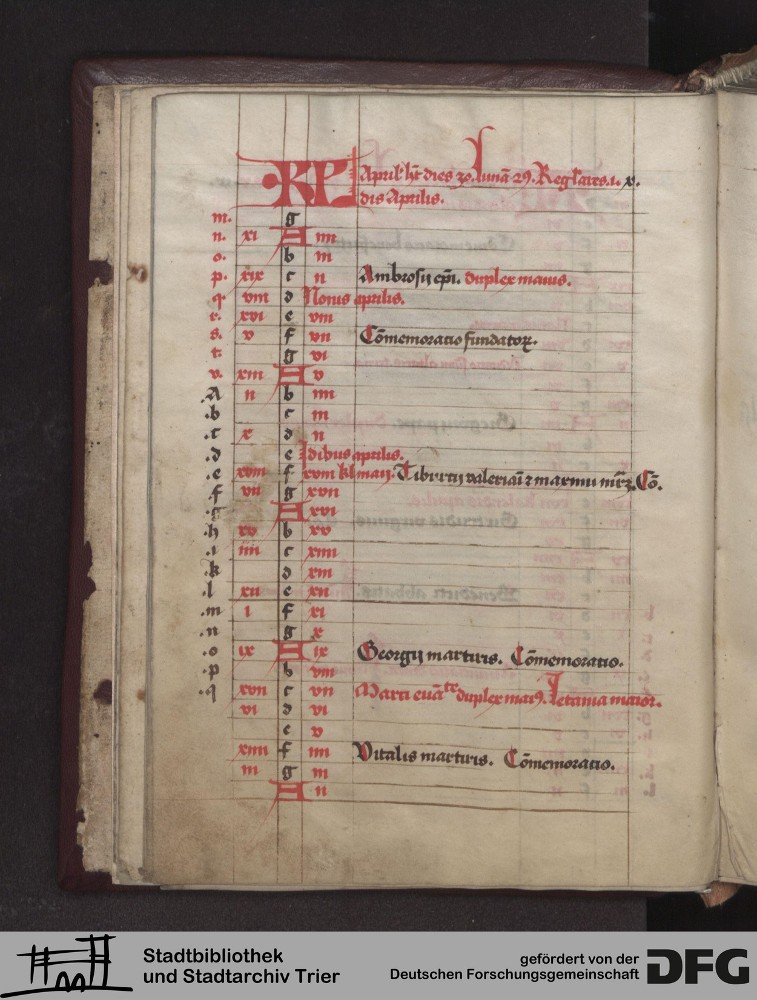 KL Aprił hт dies 30. lunā 29. Regłares. 1. x.
dis Aprilis.
m. g
n. xi A iiii
o. b iii
p. xix c ii Ambrosij ep̄i. duplex maius.
q. viii d Nonis aprilis.
r. xvi e viii
s. v f vii Cōmemoratio fundatoꝝ.
t. g vi
v. xiii A v
.A ii b iiii
.b c iii
.c x d ii
.d e Idibus aprilis.
.e xviii f xviii kł maij. Tiburtij valeriāi ⁊ maximi mr̄ꝝ. Cō.
.f vii g xvii
.g A xvi
.h xv b xv
.i iiii c xiiii
.k d xiii
.l xii e xii
.m i f xi
.n g x
.o ix A ix Georgij martiris. Cōmemoratio.
.p b viii
.q xvii c vii Marci euāᵗᵉ duplex maiꝰ. Letania maior.
vi d vi
e v
xiiii f iiii Vitalis martiris. Cōmemoratio.
iii g iii
A ii
Stadtbibliothek
und Stadtarchiv Trier
gefördert von der
Deutschen Forschungsgemeinschaft
DFG